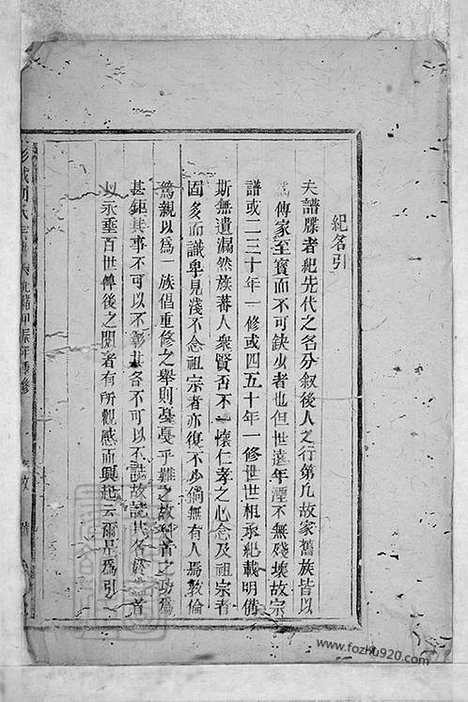 紀名引
夫譜牒者紀先代之名分叙後人之行第凡故家舊族皆以
傳家至寳而不可缺少者也但世遠年湮不無殘壊故宗
譜或二三十年一修或四五十年一修世世相承紀載明備
斯無遺漏然族蕃人衆賢否不一懐仁孝之心念及祖宗者
固多而識卑見淺不念祖宗者亦復不少倘無有人爲敦倫
篤親以爲一族倡重修之舉則戞戞乎難之故首之功爲
甚鉅其事不可以不彰其名不可以不誌故誌其名於首
以永垂百世俾後之閱者有所觀感而興起云爾是爲引
www.fozhu920.com